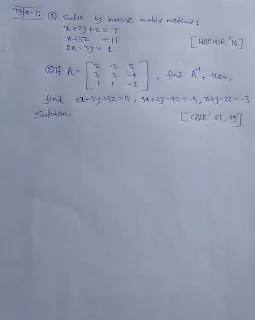 Type-I: ① Solve by inverse matrix method:
x+2y+z=7
x+3z=11
2x-3y=1
[NBCHSE '10]
② If A=
[2 -3 5
3 2 -4
1 1 -2]
, find A⁻¹, then,
find 2x-3y+5z=11, 3x+2y-4z=-5, x+y-2z=-3
Solution.
[CBSE' 07, 09]